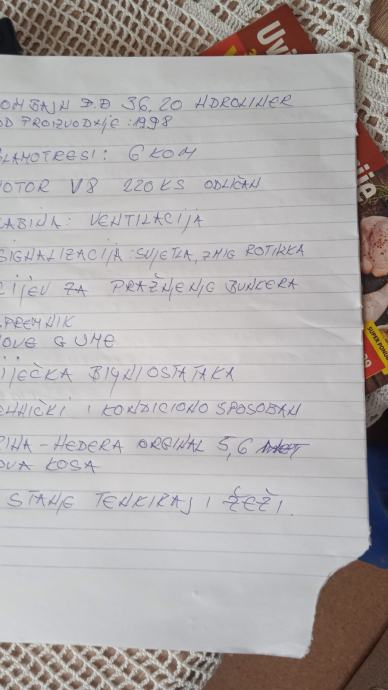 OMBAJN D.D 36.20 HDROLINER
OD PROIZVODNJE: 1998
LAMOTRESI: 6 KOM
OTOR V8 220 KS ODLIČAN
ABINA: VENTILACIJA
SIGNALIZACIJA: SVJETLA, ŽMIG ROTIRKA
CIJEV ZA PRAŽNJENJE BUNKERA
SPREMNIK
OVE GUME
IJEČKA BIYNI OSTATAKA
EHNIČKI I KONDICIONO SPOSOBAN
INA - HEDERA ORGINAL 5,6
OVA KOSA
STANJE TENKIRAJ I ŽEŽI.
Uvi
ije
SUPER PONUDA